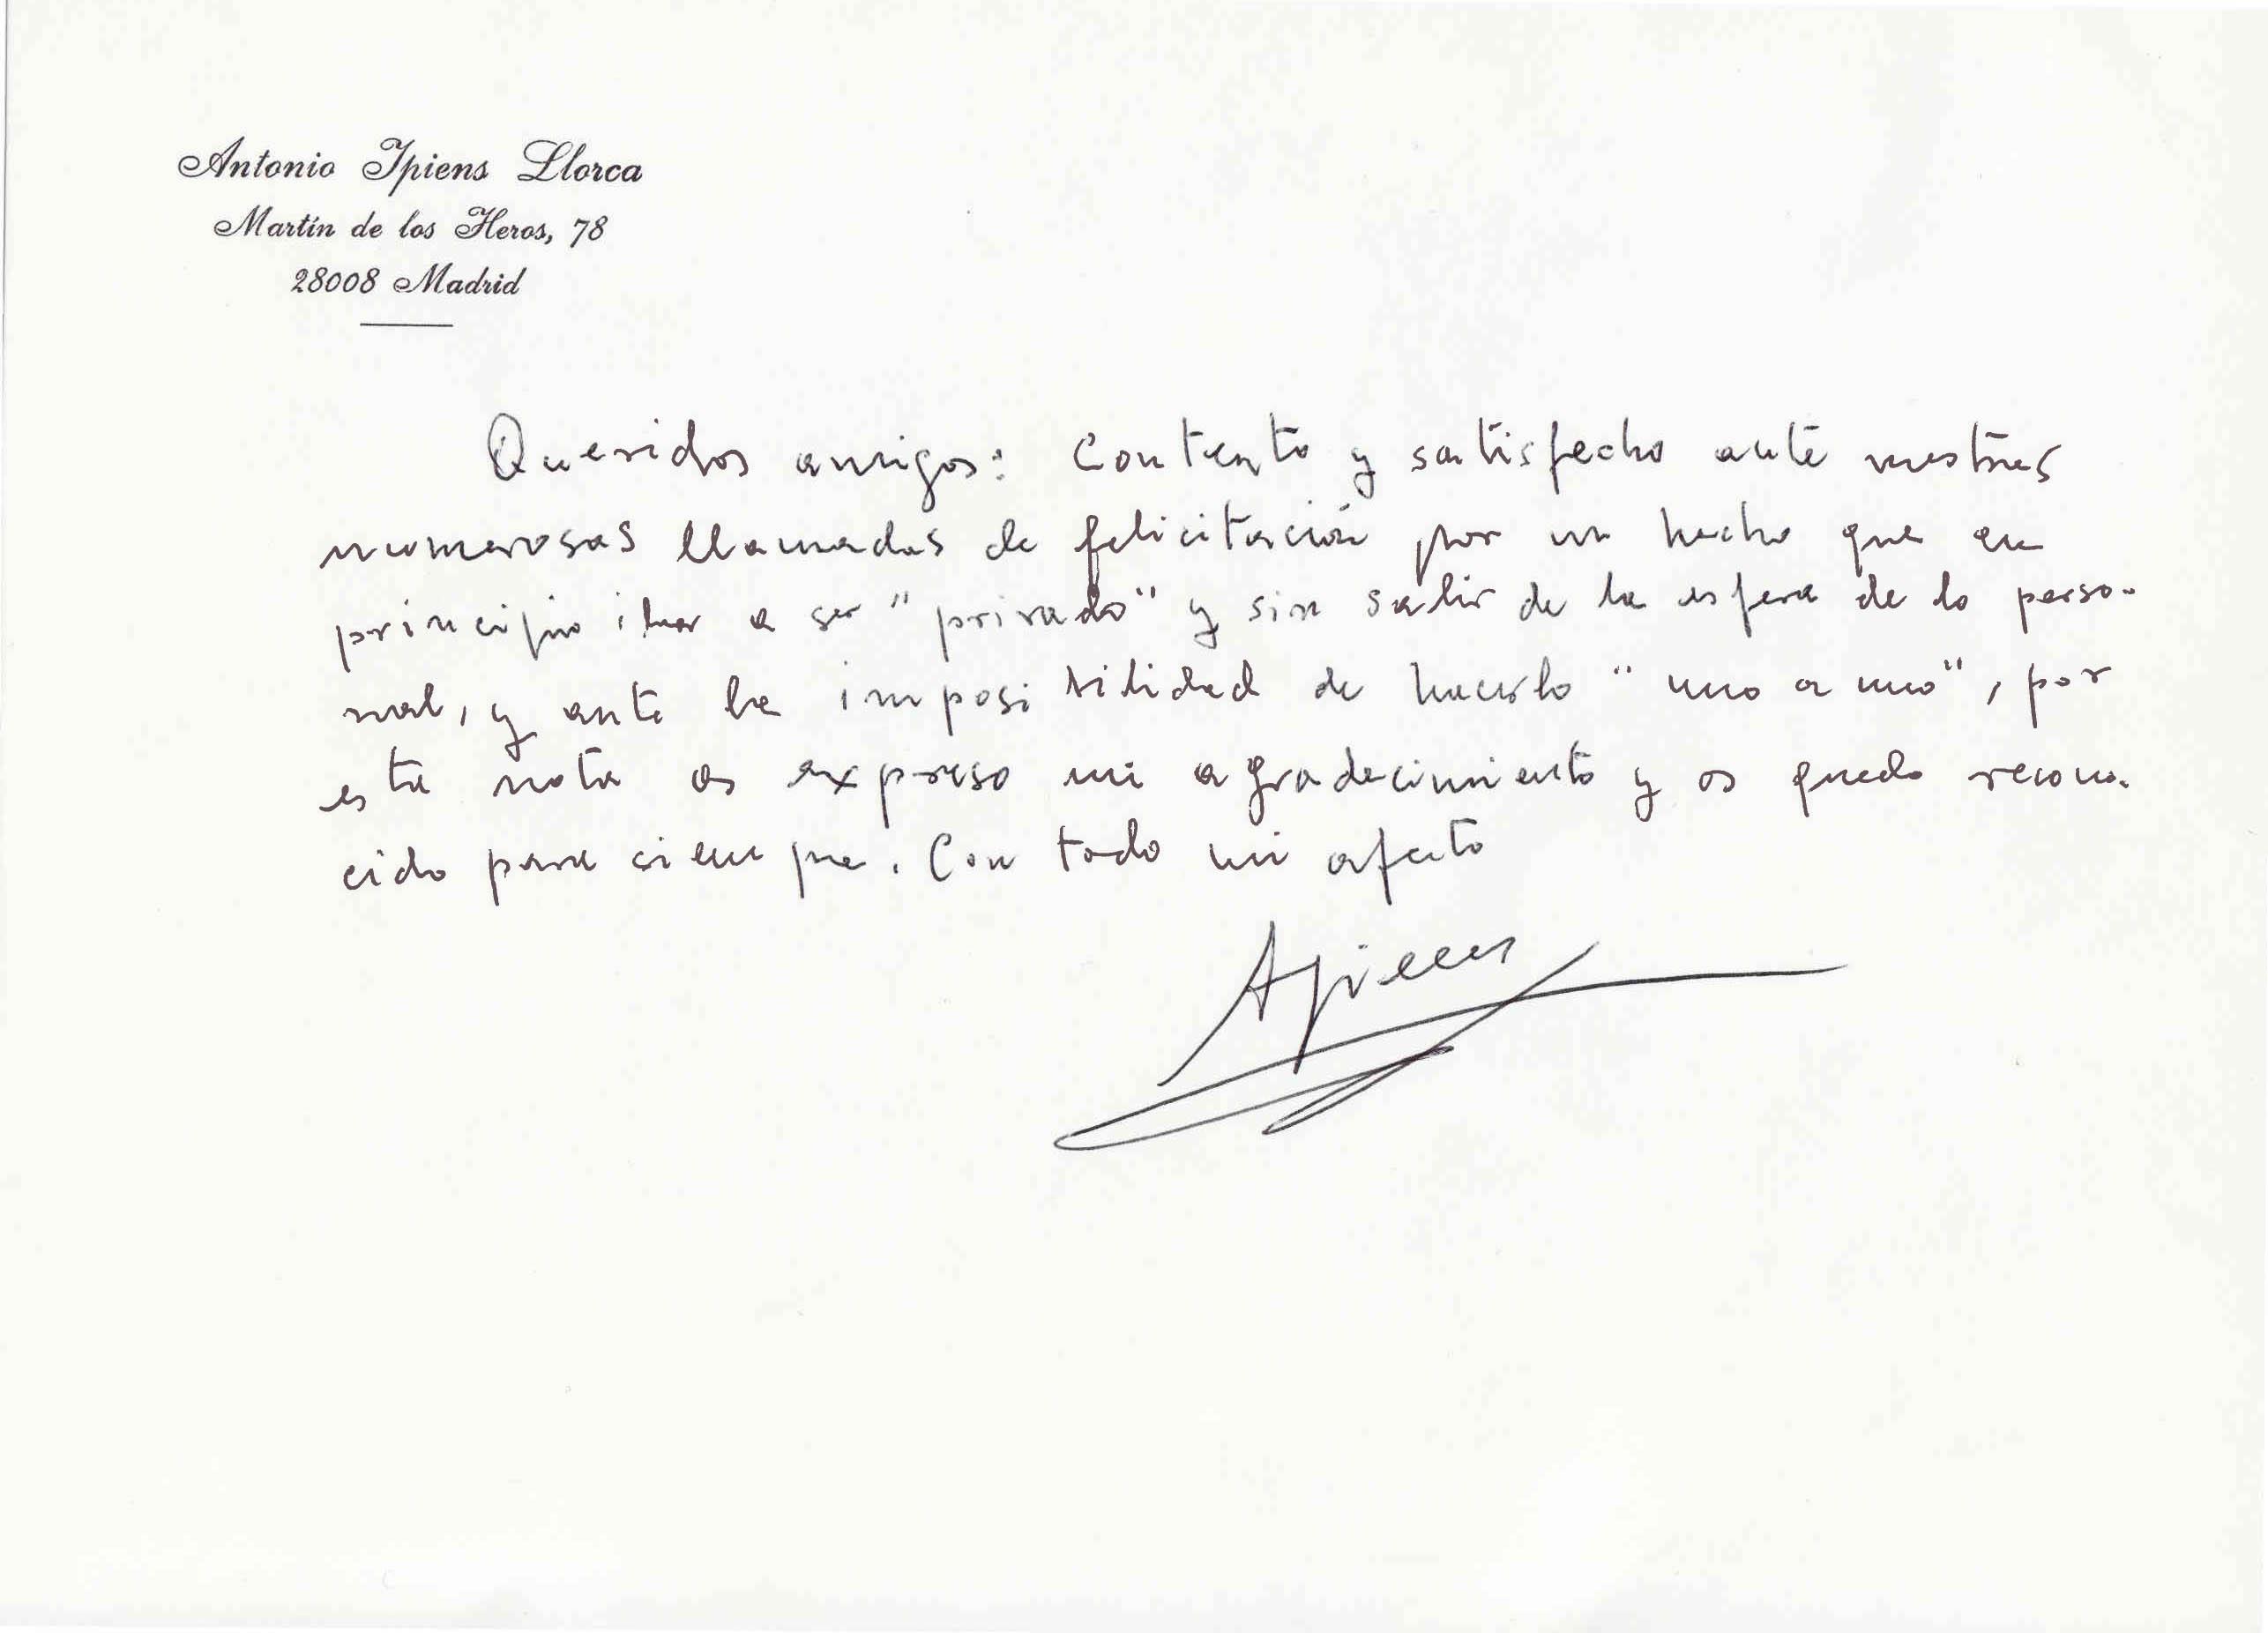 Antonio Ipiens Llorca
Martín de los Heros, 78
28008 Madrid
Queridos amigos: Contento y satisfecho ante vuestras
numerosas llamadas de felicitación por un hecho que en
principio iba a ser "privado" y sin salir de la esfera de lo perso-
nal, y ante la imposibilidad de hacerlo "uno a uno", por
esta nota os expreso mi agradecimiento y os quedo recono-
cido para siempre. Con todo mi afecto
AIpiens